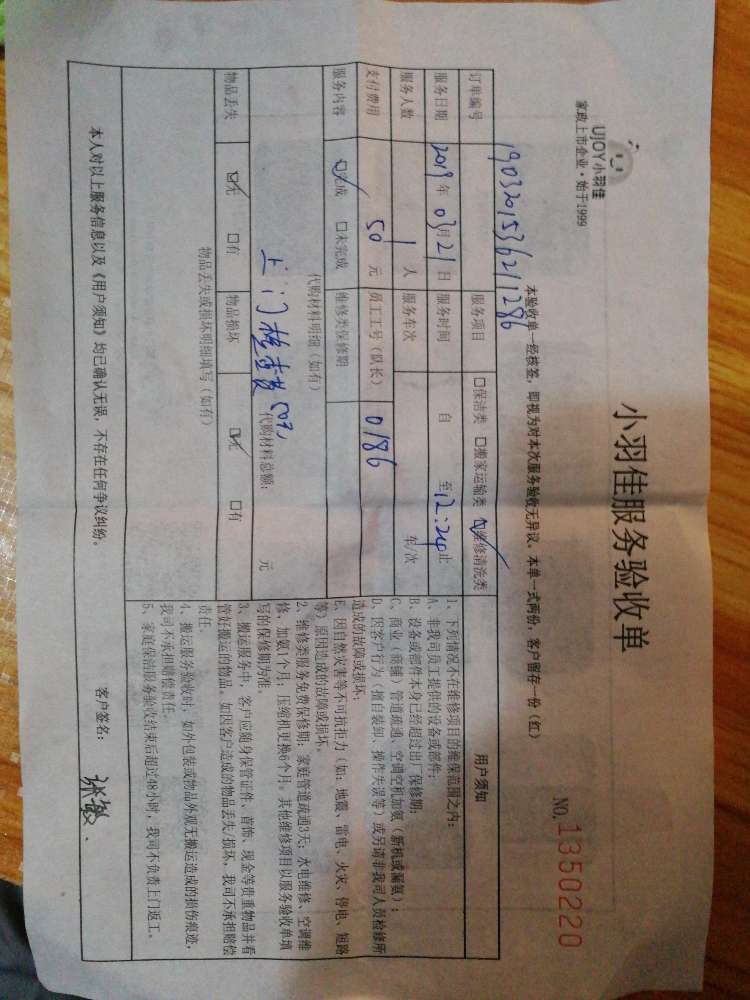 UJOY小羽佳
家政上市企业·始于1999
小羽佳服务验收单
NO.1350220
本验收单一经核签，即视为对本次服务验收无异议。本单一式两份，客户留存一份（红）
订单编号 1903201536211286 服务项目 □保洁类 □搬家运输类 ☑维修清洗类
服务日期 2019年03月21日 服务时间 自 至12:24止
服务人数 1人 服务车次 车/次
支付费用 50元 员工工号（队长） 0186
服务内容 ☑完成 □未完成 维修类保修期
代购材料明细（如有）
上门检查费50元 代购材料总额： 元
物品丢失 ☑无 □有 物品损坏 ☑无 □有
物品丢失或损坏明细填写（如有）
用户须知
1、下列情况不在维修项目的维保范围之内：
A、非我司员工提供的设备或部件；
B、设备或部件本身已经超过出厂保修期；
C、商业（商铺）管道疏通、空调空机加氨（新机或漏氨）；
D、因客户行为（擅自装卸、操作失误等）或另请非我司人员检修所
造成的故障或损坏；
E、因自然灾害等不可抗拒力（如：地震、雷电、火灾、停电、短路
等）原因造成的故障或损坏。
2、维修类服务免费保修期：家庭管道疏通3天；水电维修、空调维
修、加氨1个月；压缩机更换6个月。其他维修项目以服务验收单填
写的保修期为准。
3、搬运服务中，客户应随身保管证件、首饰、现金等贵重物品并看
管好搬运的物品，如因客户造成的物品丢失/损坏，我司不承担赔偿
责任。
4、搬运服务验收时，如外包装或物品外观无搬运造成的损伤痕迹，
我司不承担赔偿责任。
5、家庭保洁服务验收结束后超过48小时，我司不负责上门返工。
本人对以上服务信息以及《用户须知》均已确认无误，不存在任何争议纠纷。
客户签名： 张敏.